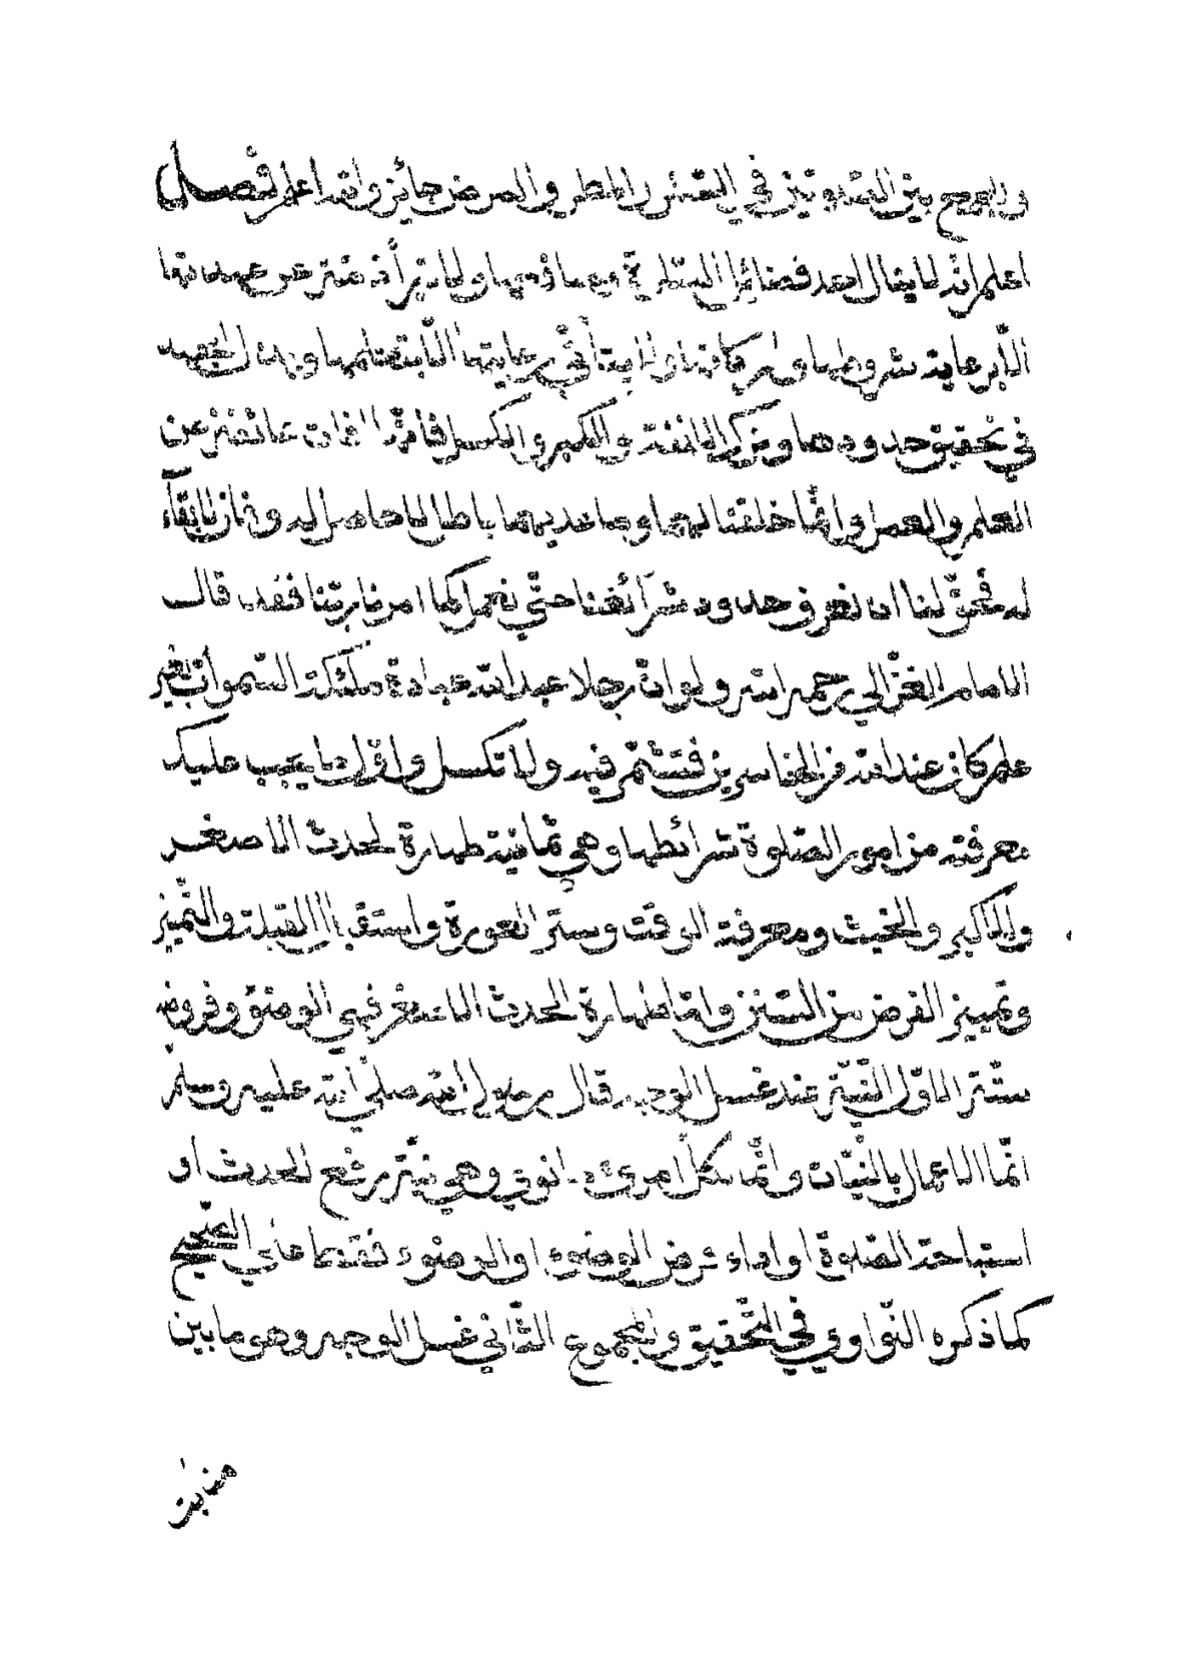 والجمع بين الصلوتين في السفر والمطر والمرض جائز والله اعلم فصل
اعلم انه لا ينال احد فضائل الصلوة ولا تبرأ ذمته عن عهدتها
الا برعاية شروطها واركانها ولا يتأتّى رعايتها الا بتعلمها وبذل الجهد
في تحقيق حدودها وترك الانفة والكبر والكسل فانها افات عائقة عن
العلم والعمل وانما خلقنا لهما وما عديهما باطل لا حاصل له وفان لا بقاء
له فحق لنا ان نعرف حدود شرائعنا حتّي نعمل كما امرنا ربّنا فقد قال
الامام الغزّالي رحمه الله ولو انّ رجلا عبد الله عبادة ملئكة السّموات بغير
علم كان عند الله من الخاسرين فتشمّر فيه ولا تكسل واوّل ما يجب عليك
معرفته من امور الصّلوة شرائطها وهي ثمانية طهارة لحدث الاصغر
والاكبر والخبث ومعرفة الوقت وستر العورة واستقبال القبلة والتّميز
وتمييز الفرض من السّنن وامّا طهارة الحدث الاصغر فهي الوضوء وفروضه
ستّة الاوّل النّيّة عند غسل الوجه قال رسول الله صلّي الله عليه وسلّم
انّما الاعمال بالنّيّات وانّما لكلّ امرئ ما نوي وهي نيّة رفع الحدث او
استباحة الصّلوة او اداء فرض الوضوء او الوضوء فقط علي الصّحيح
كما ذكره النّواوي في التّحقيق والمجموع الثّاني غسل الوجه وهو ما بين
منابت